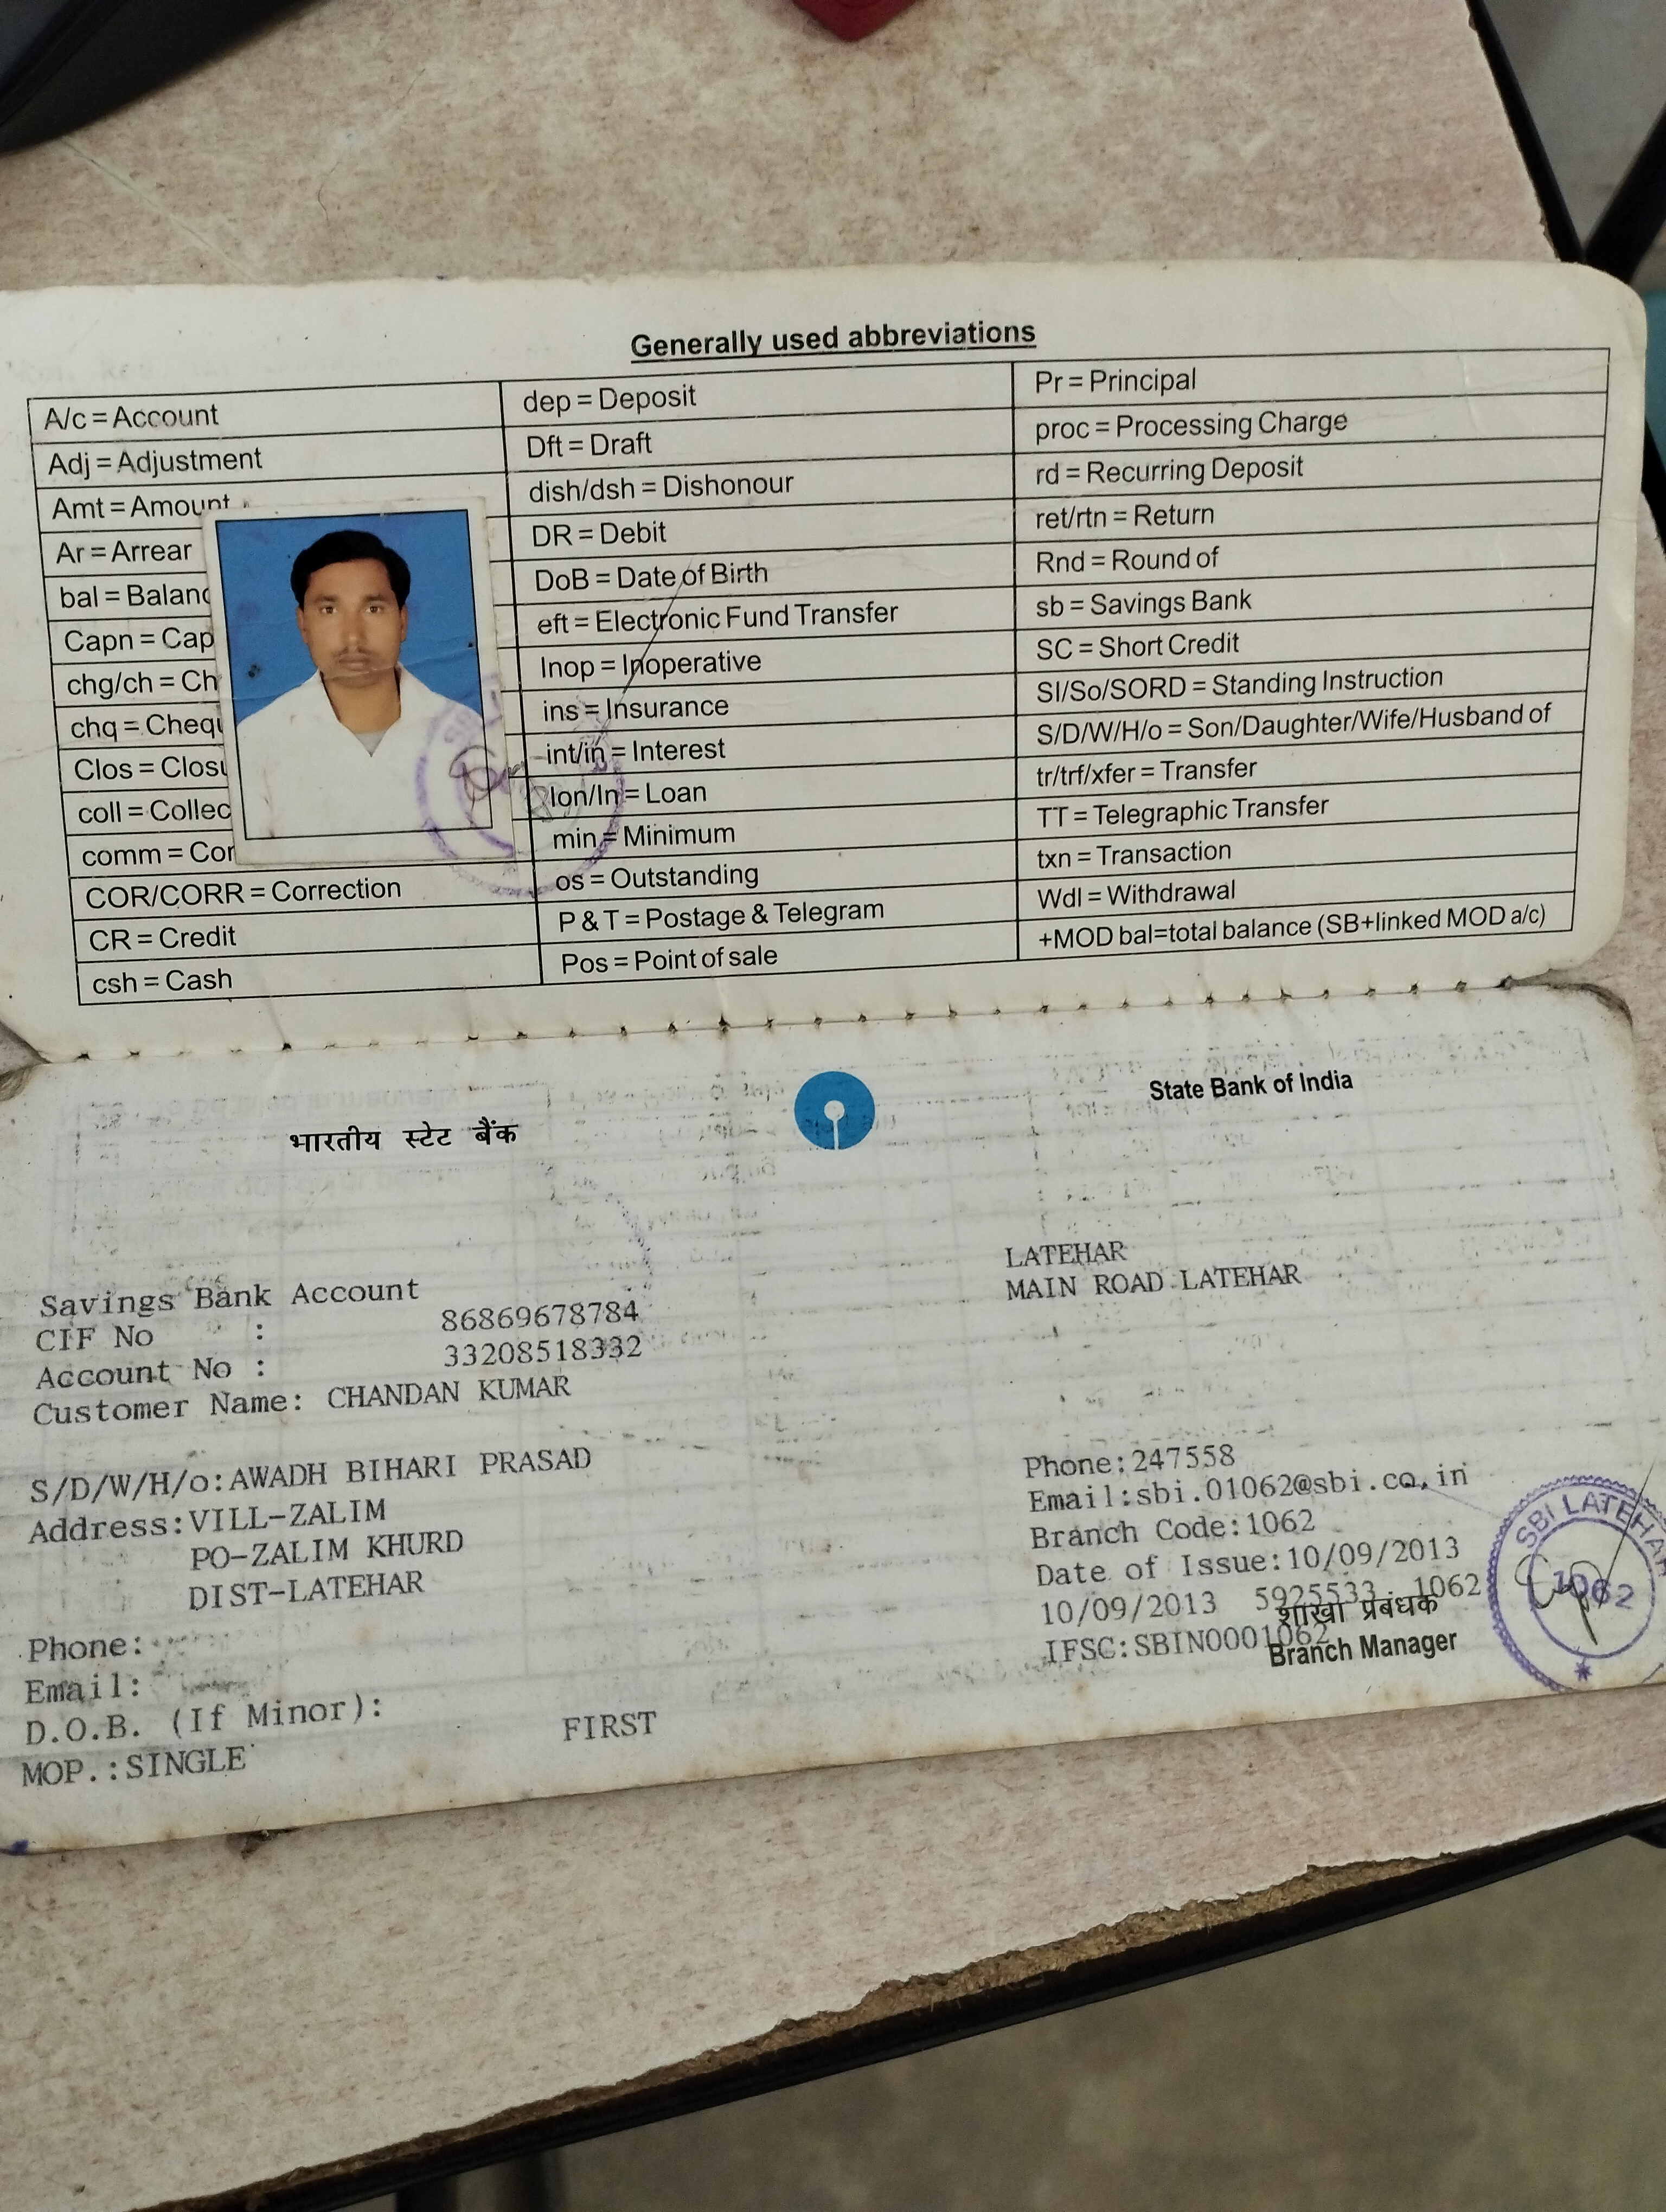 Generally used abbreviations
A/c = Account
Adj = Adjustment
Amt = Amount
Ar = Arrear
bal = Balanc
Capn = Cap
chg/ch = Ch
chq = Chequ
Clos = Closu
coll = Collec
comm = Con
COR/CORR = Correction
CR = Credit
csh = Cash
dep = Deposit
Dft = Draft
dish/dsh = Dishonour
DR = Debit
DoB = Date of Birth
eft = Electronic Fund Transfer
Inop = Inoperative
ins = Insurance
int/in = Interest
lon/ln = Loan
min = Minimum
os = Outstanding
P & T = Postage & Telegram
Pos = Point of sale
Pr = Principal
proc = Processing Charge
rd = Recurring Deposit
ret/rtn = Return
Rnd = Round of
sb = Savings Bank
SC = Short Credit
SI/So/SORD = Standing Instruction
S/D/W/H/o = Son/Daughter/Wife/Husband of
tr/trf/xfer = Transfer
TT = Telegraphic Transfer
txn = Transaction
Wdl = Withdrawal
+MOD bal=total balance (SB+linked MOD a/c)
भारतीय स्टेट बैंक
State Bank of India
Savings Bank Account
CIF No : 86869678784
Account No : 33208518332
Customer Name: CHANDAN KUMAR
S/D/W/H/o:AWADH BIHARI PRASAD
Address:VILL-ZALIM
PO-ZALIM KHURD
DIST-LATEHAR
Phone:
Email:
D.O.B. (If Minor):
MOP.:SINGLE
FIRST
LATEHAR
MAIN ROAD LATEHAR
Phone:247558
Email:sbi.01062@sbi.co.in
Branch Code:1062
Date of Issue:10/09/2013
10/09/2013 5925533 1062
शाखा प्रबंधक
IFSC:SBIN0001062
Branch Manager
SBI LATEHAR
1062